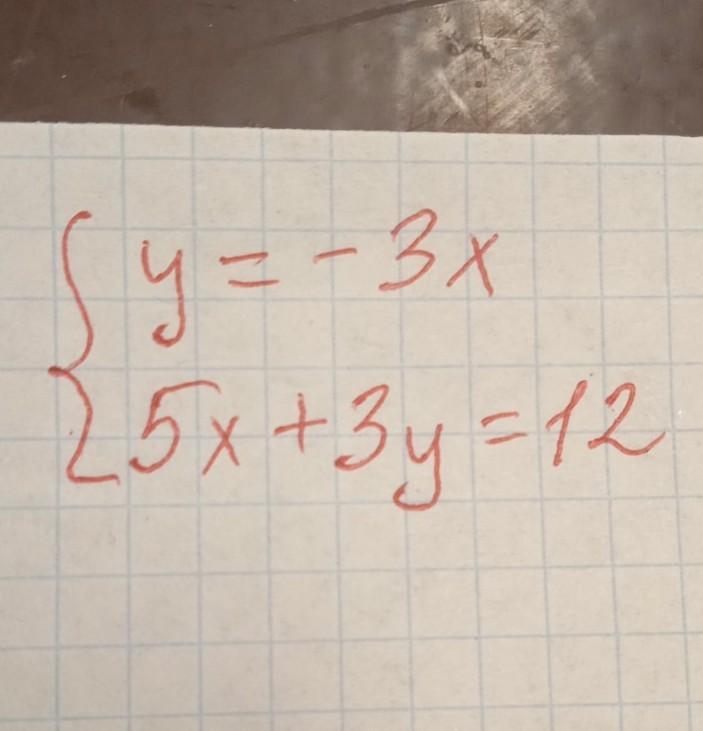 y = -3x
5x + 3y = 12